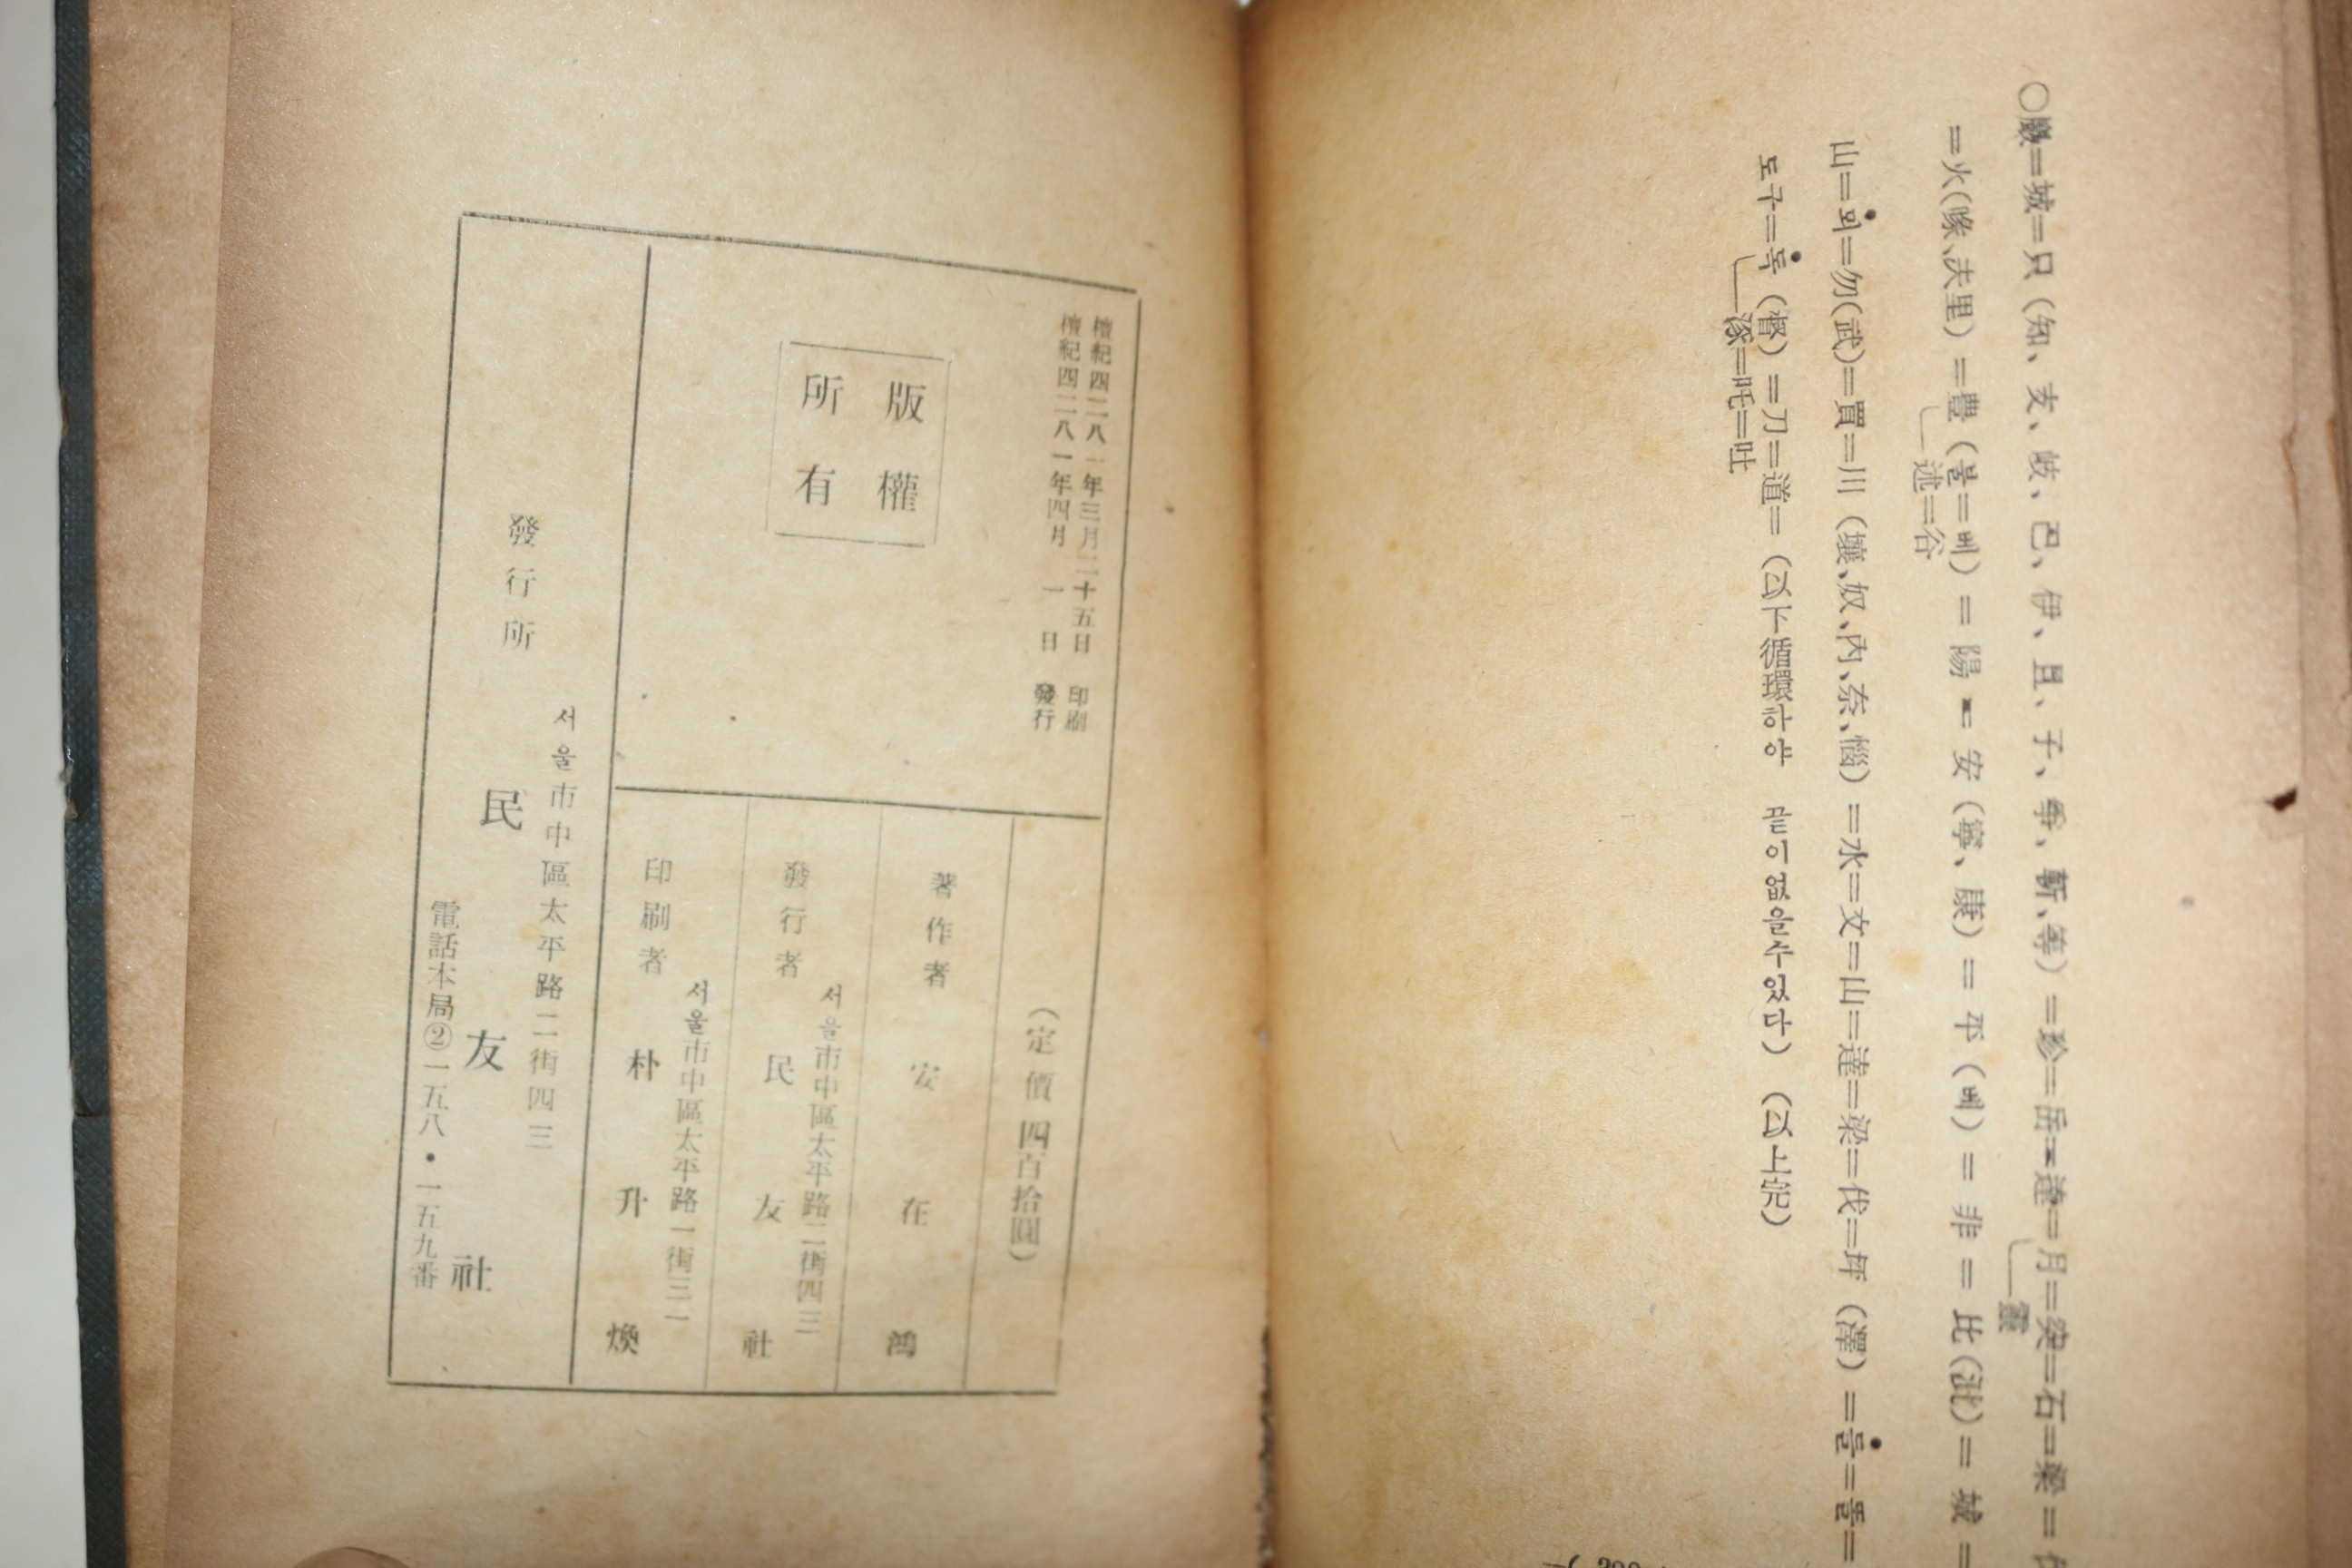 〇巖=城=只(知、支、岐、巴、伊、且、子、爭、斬、等)=珍=岳=達=月=梁=石=梁=
靈
=火(喙、夫里)=豊(볼=베)=陽=安(寧、康)=平(베)=非=比(沘)=城=
述=谷
山=뫼=勿(武)=買=川(壤、奴、內、奈、惱)=水=文=山=達=梁=伐=坪(澤)=들=돌=
도구=독(督)=刀=道=(以下循環하야 끝이없을수있다)(以上完)
涿=吒=吐
檀紀四二八一年三月二十五日 印刷
檀紀四二八一年四月 一 日 發行
版權
所有
(定價 四百拾圓)
著作者 安在鴻
서울市中區太平路二街四三
發行者 民友社
서울市中區太平路一街三一
印刷者 朴升煥
서울市中區太平路二街四三
發行所 民友社
電話本局②一五八・一五九番